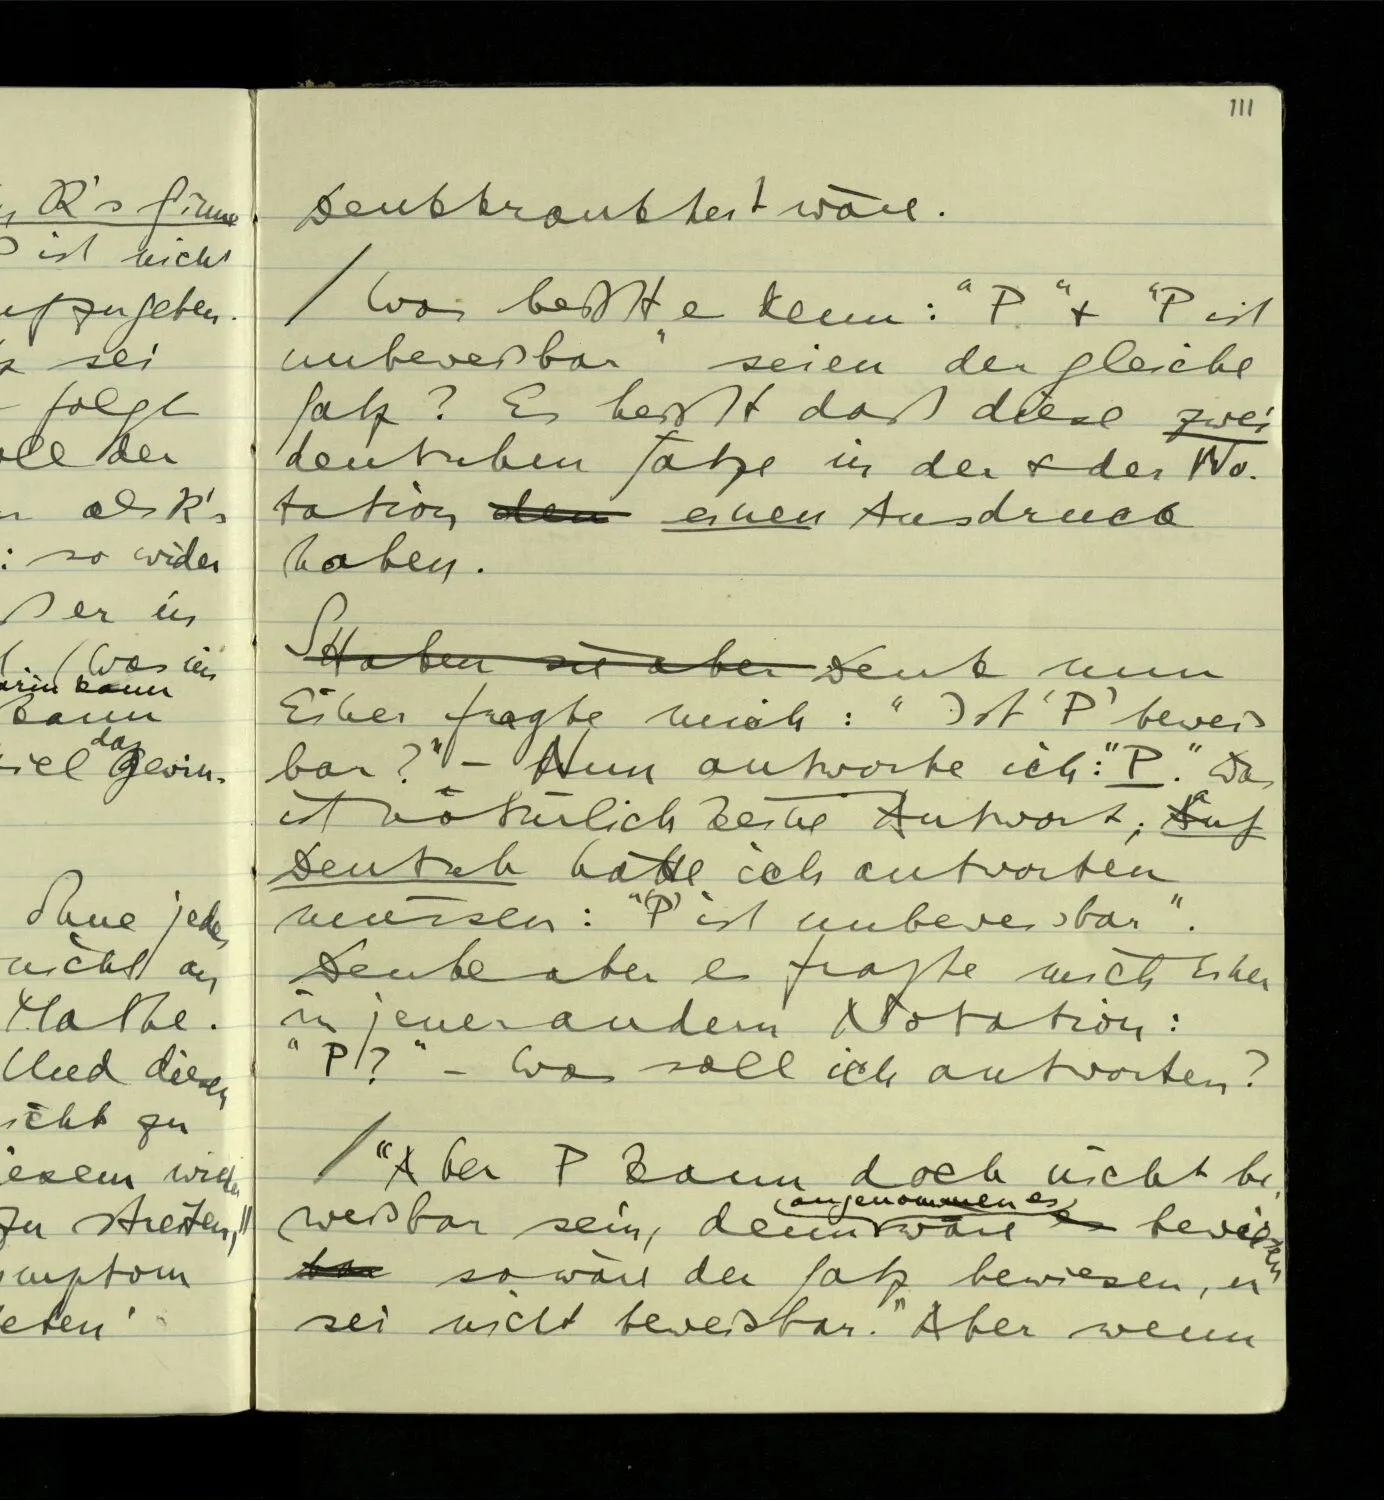 111
R's Sinne
P ist nicht
aufzugeben.
sei
folgt
der
als R's
: so wider
er in
(Was in
kann
kann
das
Gewin-
Ohne jede
nicht an
Mathe.
Und diesen
nicht zu
diesem wider
zu streiten,"
Symptom
Denkkrankheit wäre.
/ Was heißt es denn: "P" & "P ist
unbeweisbar" seien der gleiche
Satz? Es heißt daß diese zwei
deutschen Sätze in der & der No-
tation den einen Ausdruck
haben.
Haben sie aber Denk nun
Einer fragte mich: "Ist 'P' beweis
bar?" – Nun antworte ich: "P." Das
ist natürlich keine Antwort; Auf
Deutsch hätte ich antworten
müssen: "'P' ist unbeweisbar".
Denke aber es fragte mich Einer
in jener andern Notation:
"P?" – Was soll ich antworten?
/ "Aber P kann doch nicht be
angenommen es
weisbar sein, denn wäre es bewiesen
bar so wäre der Satz bewiesen, er
sei nicht beweisbar." Aber wenn